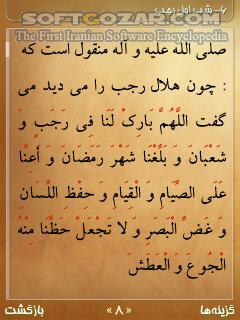 ۶- شب اول رجب
SOFTGOZAR.COM
The First Iranian Software Encyclopedia
صلى الله علیه و آله منقول است که
: چون هلال رجب را می دید می
گفت اللَّهُمَّ بَارِكْ لَنَا فِی رَجَبٍ وَ
شَعْبَانَ وَ بَلِّغْنَا شَهْرَ رَمَضَانَ وَ أَعِنَّا
عَلَى الصِّیَامِ وَ الْقِیَامِ وَ حِفْظِ اللِّسَانِ
وَ غَضِّ الْبَصَرِ وَ لا تَجْعَلْ حَظَّنَا مِنْهُ
الْجُوعَ وَ الْعَطَشَ
گزینه‌ها
« ۸ »
بازگشت